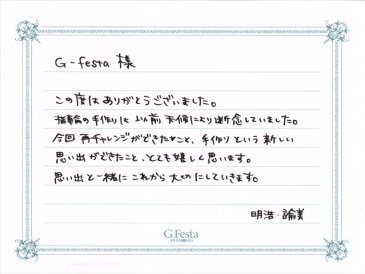 G-festa 様
この度は ありがとうございました。
指輪の手作りは 以前 天候により断念していました。
今回 再チャレンジができたこと、手作り という 新しい
思い出ができたこと、とても嬉しく思います。
思い出と一緒に これから 大切にしていきます。
明浩・諭美
G.Festa
DIAMOND